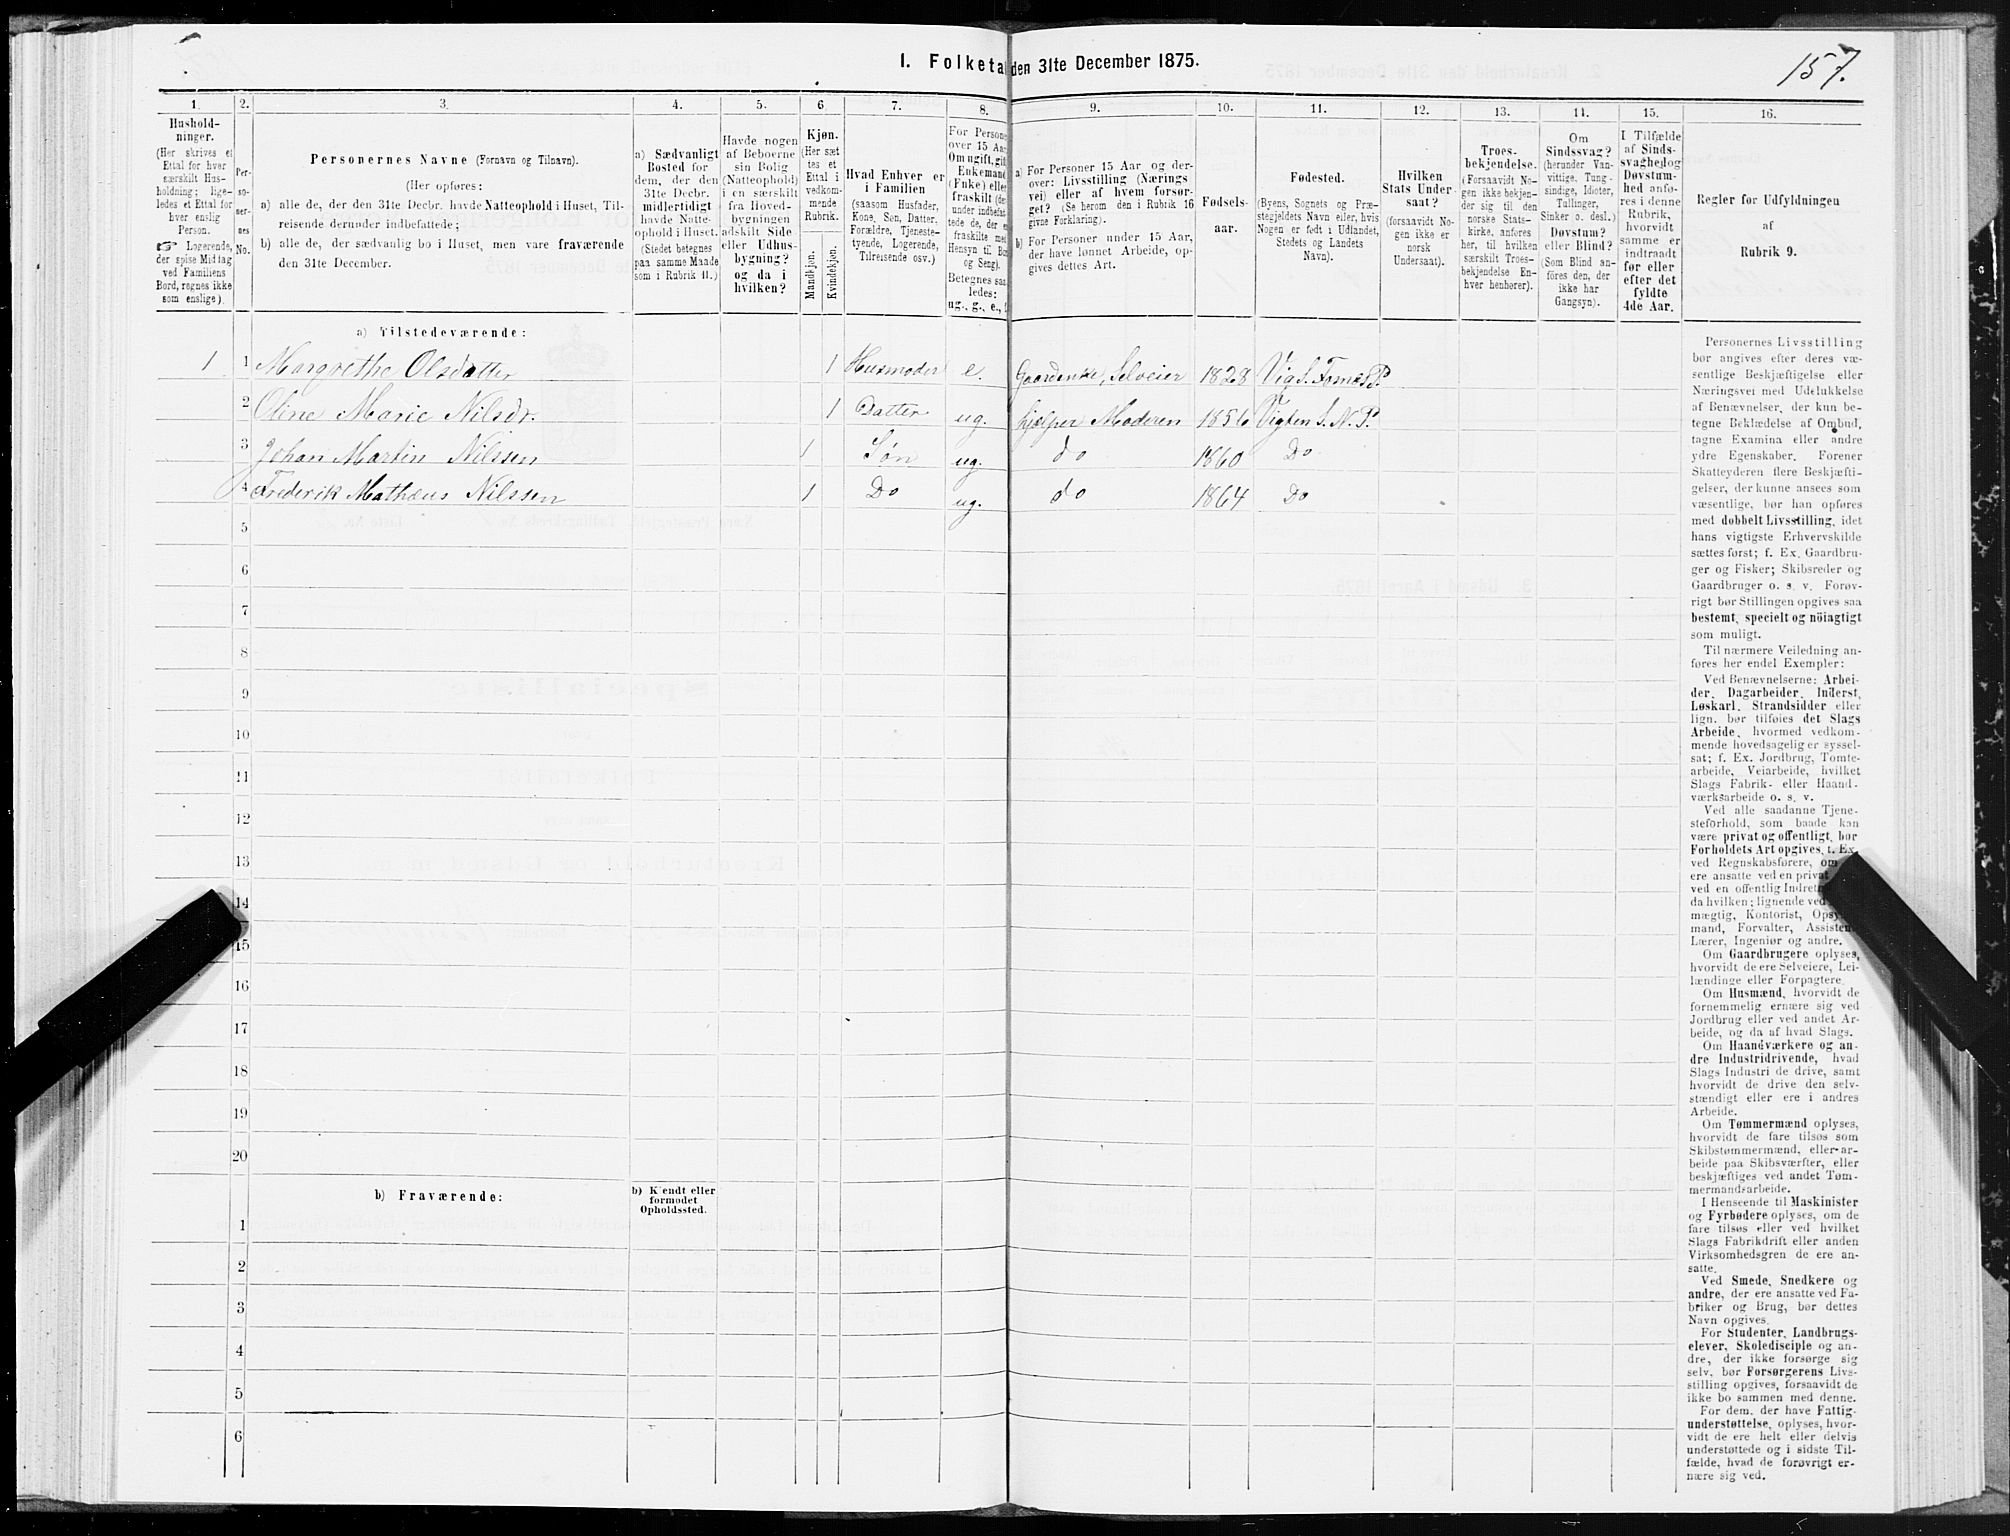 1. Folketal den 31te December 1875.
157.
1. 2. 3. 4. 5. 6. 7. 8. 9. 10. 11. 12. 13. 14. 15. 16.
Hushold-
ninger.
(Her skrives et
Ettal for hver
særskilt Hus-
holdning; lige-
ledes et Ettal for
hver enslig
Person.
☞ Logerende,
der spise Middag
ved Familiens
Bord, regnes ikke
som enslige).
Per-
so-
ner-
nes
No.
Personernes Navne (Fornavn og Tilnavn).
(Her opføres:
a) alle de, der den 31te Decbr. havde Natteophold i Huset, Til-
reisende derunder indbefattede;
b) alle de, der sædvanlig bo i Huset, men vare fraværende
den 31te December.
a) Sædvanligt
Bosted for
dem, der den
31te Decbr.
midlertidigt
havde Natte-
ophold i Huset.
(Stedet betegnes
paa samme Maade
som i Rubrik 11.)
Havde nogen
af Beboerne
sin Bolig
(Natteophold)
i en særskilt
fra Hoved-
bygningen
adskilt Side-
eller Udhus-
bygning?
og da i
hvilken?
Kjøn.
(Her sæt
tes et
Ettal i
vedkom-
mende
Rubrik.
Mandkjøn.
Kvindekjøn.
Hvad Enhver er
i Familien
(saasom Husfader,
Kone, Søn, Datter,
Forældre, Tjeneste-
tyende, Logerende,
Tilreisende osv.)
For Persone
over 15 Aar
Om ugift, gift
Enkemand
(Enke) eller
fraskilt (de
under indbefat
tede de, der e
fraskilte med
Hensyn til Bor
og Seng).
Betegnes saa
ledes:
ug., g., e., f
a) For Personer 15 Aar og der-
over: Livsstilling (Nærings
vei) eller af hvem forsør-
get? (Se herom den i Rubrik 16
givne Forklaring).
b) For Personer under 15 Aar,
der have lønnet Arbeide, op-
gives dettes Art.
Fødsels-
aar.
Fødested.
(Byens, Sognets og Præ-
stegjeldets Navn eller, hvis
Nogen er født i Udlandet,
Stedets og Landets
Navn).
Hvilken
Stats Under-
saat?
(forsaavidt No-
gen ikke er
norsk
Undersaat).
Troes-
bekjendelse.
(Forsaavidt No-
gen ikke bekjen-
der sig til den
norske Stats-
kirke, anføres
her, til hvilken
særskilt Troes-
bekjendelse En-
hver henhører).
Om
Sindssvag?
(herunder Van-
vittige, Tung-
sindige, Idioter,
Tullinger,
Sinker o. desl.)
Døvstum?
eller Blind?
(Som Blind an-
føres den, der
ikke har
Gangsyn).
I Tilfælde
af Sinds-
svaghed og
Døvstum-
hed anfø-
res i denne
Rubrik,
hvorvidt
samme er
indtraadt
før eller
efter det
fyldte
4de Aar.
Regler for Udfyldningen
af
Rubrik 9.
a) Tilstedeværende:
1 1 Margrethe Olsdatter 1 Husmoder e. Gaardenke, Selveier 1828 Vig S. Fosnæs P.
2 Oline Marie Nilsdr. 1 Datter ug. hjælper Moderen 1856 Vigten S. N. P.
3 Johan Martin Nilssen 1 Søn ug. do 1860 Do
4 Frederik Mathæus Nilssen 1 Do ug. do 1864 Do
5
6
7
8
9
10
11
12
13
14
15
16
17
18
19
20
b) Fraværende:
b) Kjendt eller
formodet
Opholdssted.
1
2
3
4
5
6
Personernes Livsstilling
bør angives efter deres væ-
sentlige Beskjæftigelse eller
Næringsvei med Udelukkelse
af Benævnelser, der kun be-
tegne Beklædelse af Ombud,
tagne Examina eller andre
ydre Egenskaber. Forener
Skatteyderen flere Beskjæfti-
gelser, der kunne ansees som
væsentlige, bør han opføres
med dobbelt Livsstilling, idet
hans vigtigste Erhvervskilde
sættes først; f. Ex. Gaardbru-
ger og Fisker; Skibsreder og
Gaardbruger o. s. v. Forøv-
rigt bør Stillingen opgives saa
bestemt, specielt og nöiagtigt
som muligt.
Til nærmere Veiledning an-
føres her endel Exempler:
Ved Benævnelserne: Arbei-
der, Dagarbeider, Inderst,
Løskarl, Strandsidder eller
lign. bør tilføies det Slags
Arbeide, hvormed vedkom-
mende hovedsagelig er syssel-
sat; f. Ex. Jordbrug, Tomte-
arbeide, Veiarbeide, hvilket
Slags Fabrik- eller Haand-
værksarbeide o. s. v.
Ved alle saadanne Tjene-
steforhold, som baade kan
være privat og offentligt, bør
Forholdets Art opgives, f. Ex.
ved Regnskabsførere, om
ere ansatte ved en privat
ved en offentlig Indretn
da hvilken; lignende ved
mægtig, Kontorist, Opsy
mand, Forvalter, Assisten
Lærer, Ingeniør og andre.
Om Gaardbrugere oplyses,
hvorvidt de ere Selveiere, Lei-
lændinge eller Forpagtere.
Om Husmænd, hvorvidt de
fornemmelig ernære sig ved
Jordbrug eller ved andet Ar-
beide, og da af hvad Slags.
Om Haandværkere og an-
dre Industridrivende, hvad
Slags Industri de drive, samt
hvorvidt de drive den selv-
stændigt eller ere i andres
Arbeide.
Om Tømmermænd oplyses,
hvorvidt de fare tilsøs som
Skibstømmermænd, eller ar-
beide paa Skibsværfter, eller
beskjæftiges ved andet Tøm-
mermandsarbeide.
I Henseende til Maskinister
og Fyrbødere oplyses, om de
fare tilsøs eller ved hvilket
Slags Fabrikdrift eller anden
Virksomhedsgren de ere an-
satte.
Ved Smede, Snedkere og
andre, der ere ansatte ved Fa-
briker og Brug, bør dettes
Navn opgives.
For Studenter, Landbrugs-
elever, Skoledisciple og an-
dre, der ikke forsørge sig
selv, bør Forsørgerens Livs-
stilling opgives, forsaavidt de
ikke bo sammen med denne.
For dem, der have Fattig-
understøttelse, oplyses, hvor-
vidt de ere helt eller delvis
understøttede og i sidste Til-
fælde, hvad de forøvrigt er-
nære sig ved.